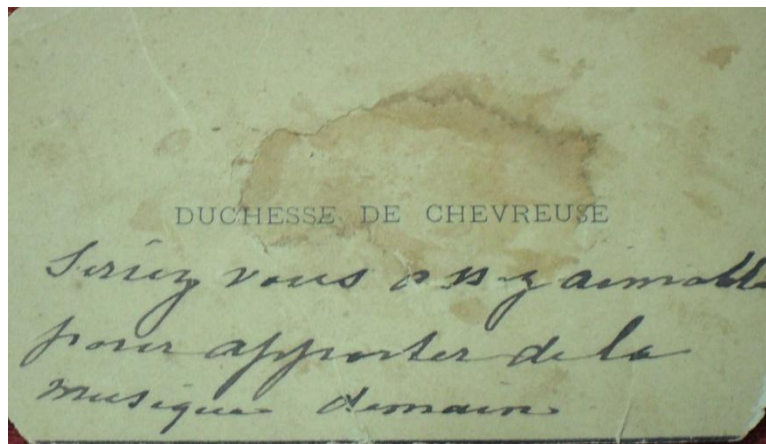 DUCHESSE DE CHEVREUSE
Seriez vous assez aimable
pour apporter de la
musique demain